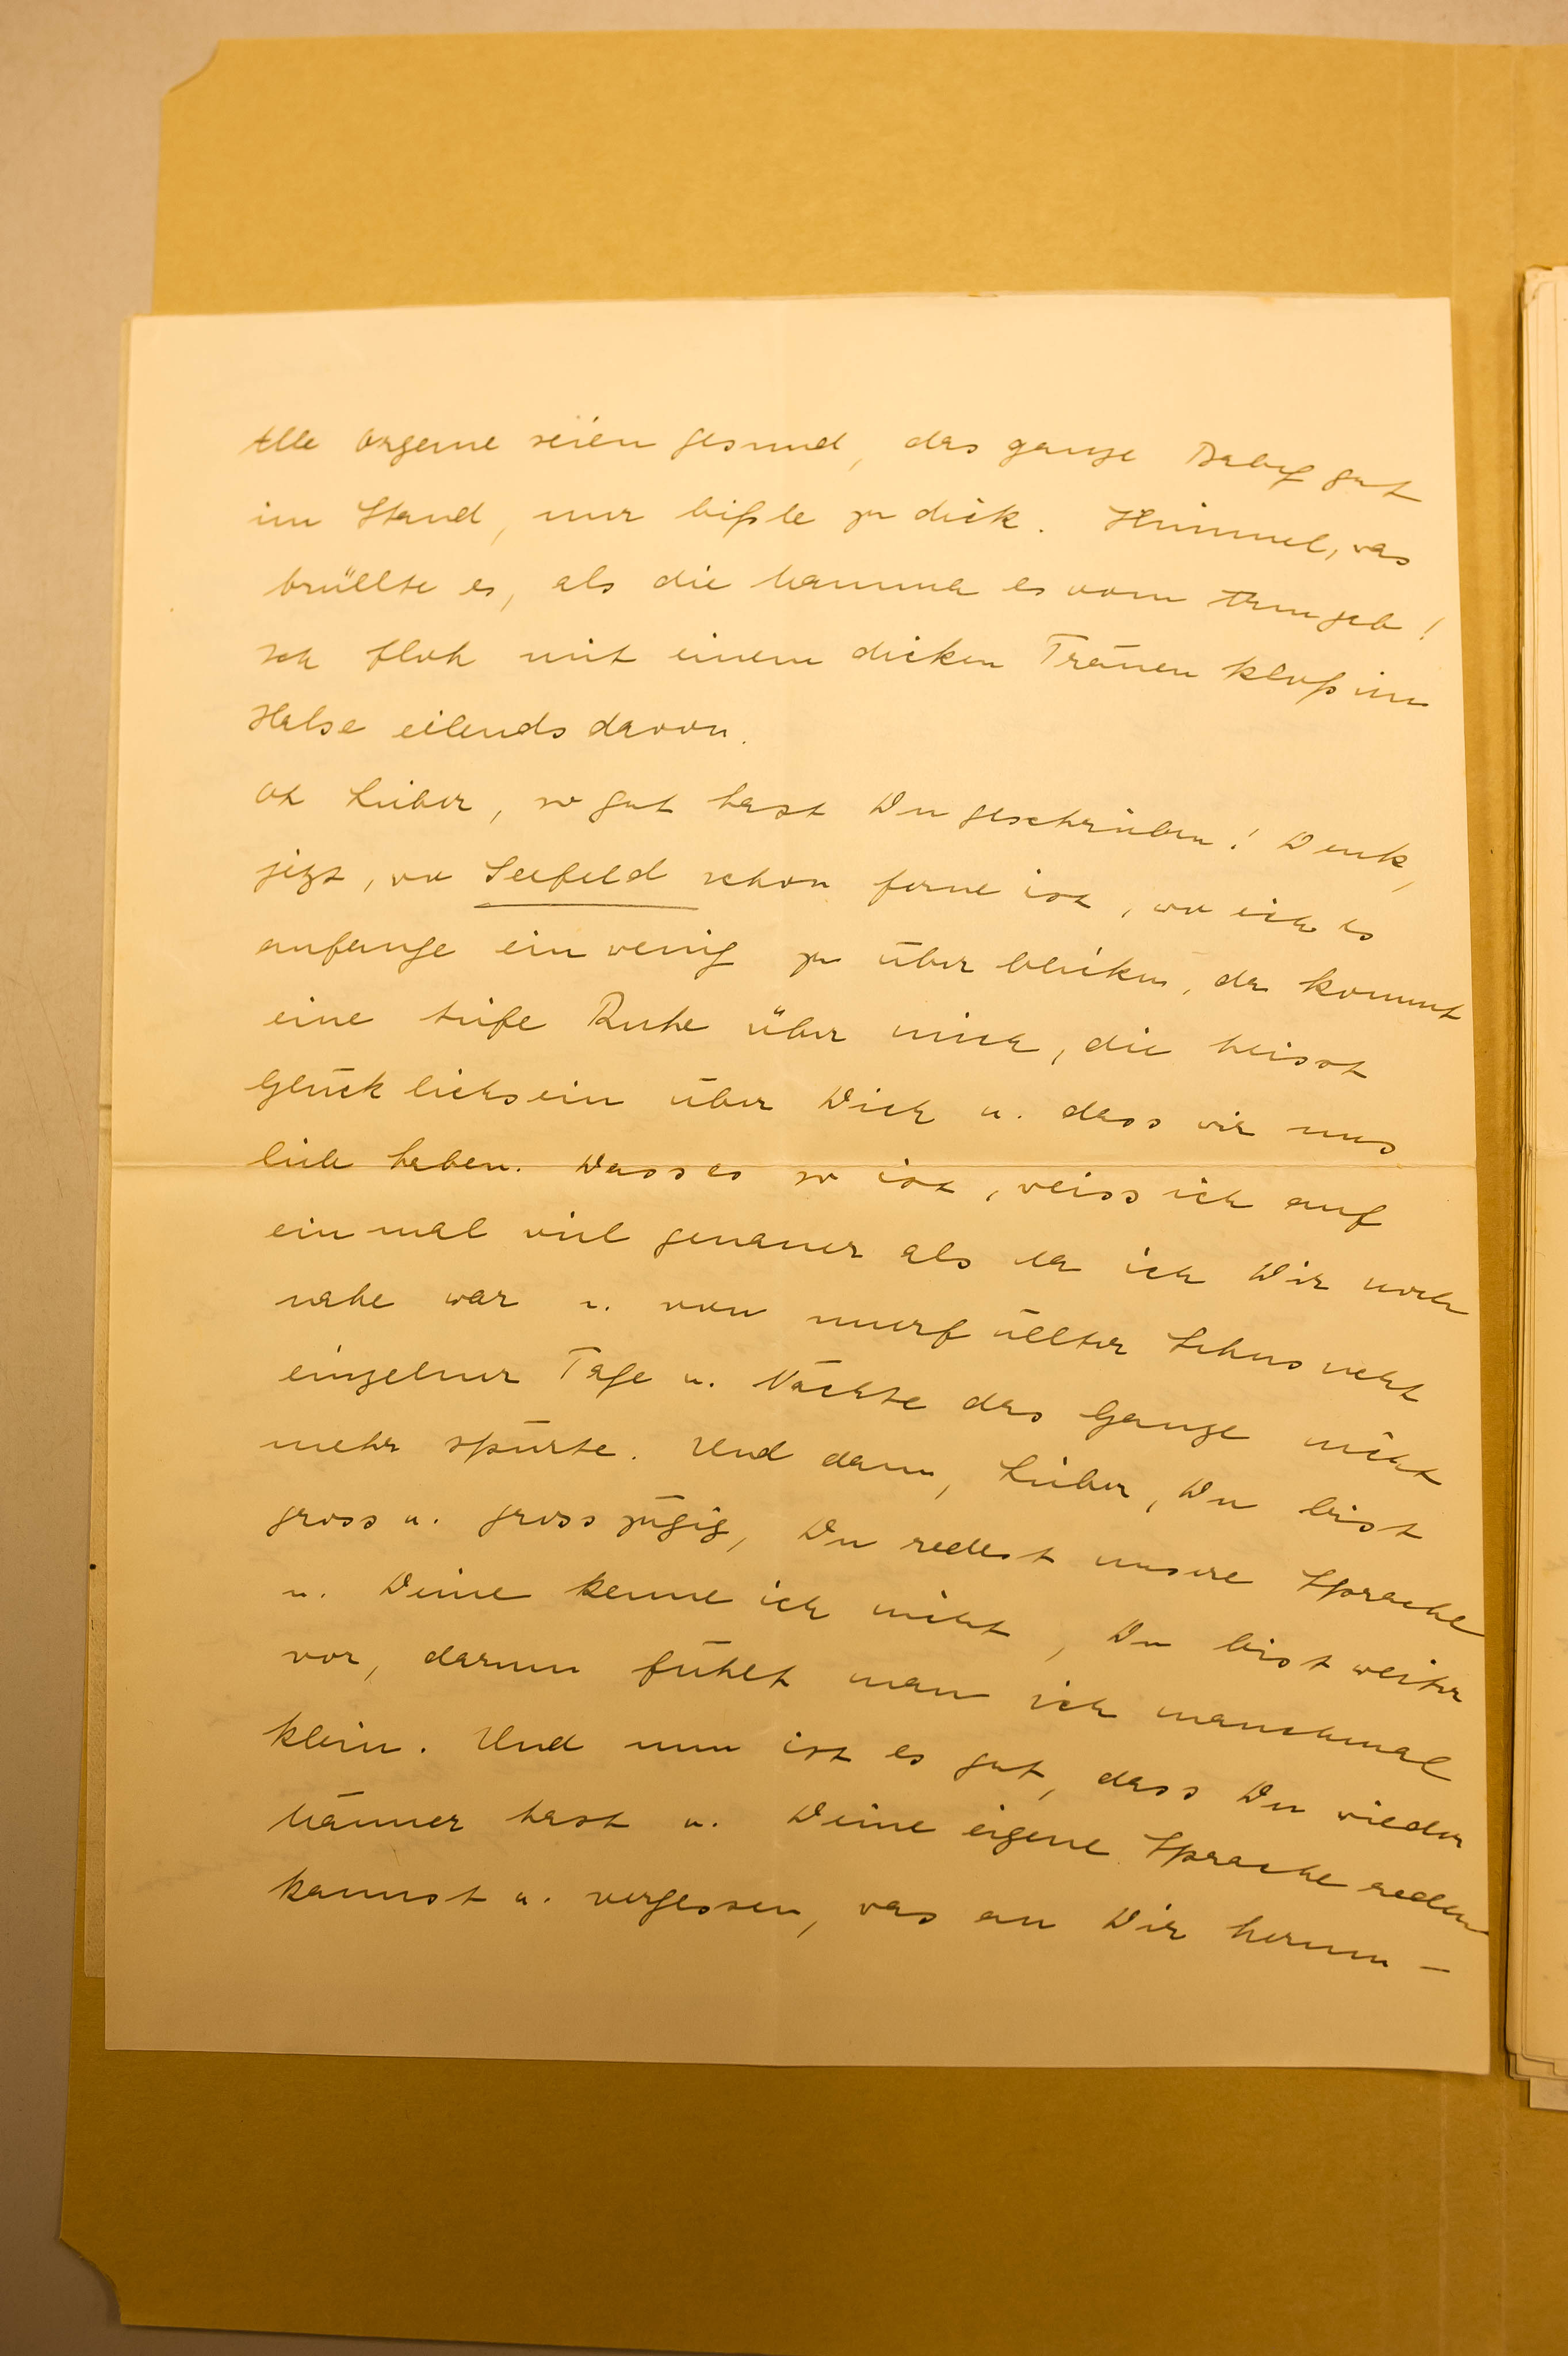 Alle Organe seien gesund, das ganze Baby gut
im Stand, nur bißle zu dick. Himmel, was
brüllte es, als die Mamma es vom Arm gab!
Ich floh mit einem dicken Tränenkloß im
Halse eilends davon.
Oh Lieber, so gut hast Du geschrieben! Denk,
jetzt, wo Seefeld schon ferne ist, wo ich es
anfange ein wenig zu überblicken, da kommt
eine tiefe Ruhe über mich, die heisst
Glücklichsein über Dich u. dass wir uns
lieb haben. Dass es so ist, weiss ich auf
einmal viel genauer als da ich Dir noch
nahe war u. von unerfüllter Sehnsucht
einzelner Tage u. Nächte das Ganze nicht
mehr spürte. Und dann, Lieber, Du bist
gross u. grosszügig, Du redest unsere Sprache
u. Deine kenne ich nicht, Du bist weiter
vor, darum fühlt man sich manchmal
klein. Und nun ist es gut, dass Du wieder
Männer hast u. Deine eigene Sprache reden
kannst u. vergessen, was an Dir herum –